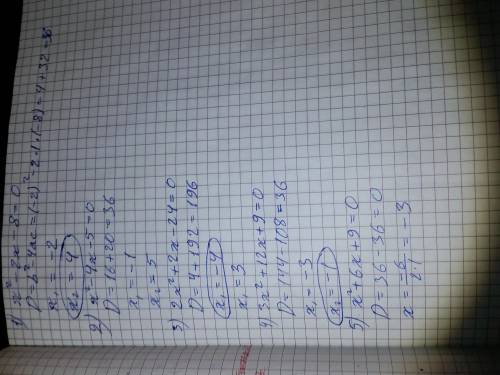 1) x² - 2x - 8 = 0
D = b² - 4ac = (-2)² - 2·1·(-8) = 4 + 32 = 36
x₁ = -2
x₂ = 4
2) x² - 4x - 5 = 0
D = 16 + 20 = 36
x₁ = -1
x₂ = 5
3) 2x² + 2x - 24 = 0
D = 4 - 192 = 196
x₁ = -4
x₁ = 3
4) 3x² + 12x + 9 = 0
D = 144 - 108 = 36
x₁ = -3
x₂ = -1
5) x² + 6x + 9 = 0
D = 36 - 36 = 0
x = -6/2·1 = -3